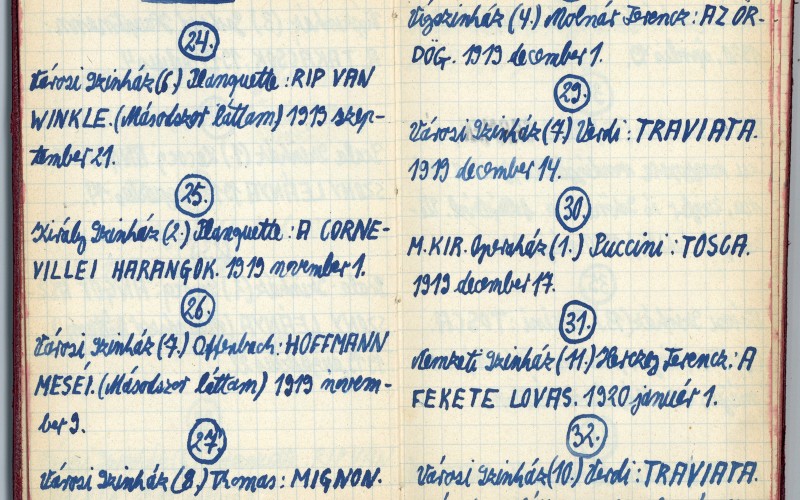 24.
Városi Szinház (6.) Planquette: RIP VAN
WINKLE. (Másodszor láttam) 1919 szep-
tember 21.
25.
Király Szinház (2.) Planquette: A CORNE-
VILLEI HARANGOK. 1919 november 1.
26.
Városi Szinház (7.) Offenbach: HOFFMANN
MESÉI. (Másodszor láttam) 1919 novem-
ber 9.
27.
Városi Szinház (8.) Thomas: MIGNON.
Vigszinház (4.) Molnár Ferencz: AZ ÖR-
DÖG. 1919 december 1.
29.
Városi Szinház (9) Verdi: TRAVIATA.
1919 december 14.
30.
M. KIR. Operaház (1.) Puccini: TOSCA.
1919 december 17.
31.
Nemzeti Szinház (11.) Herczeg Ferencz: A
FEKETE LOVAS. 1920 január 1.
32.
Városi Szinház (10.) Verdi: TRAVIATA.